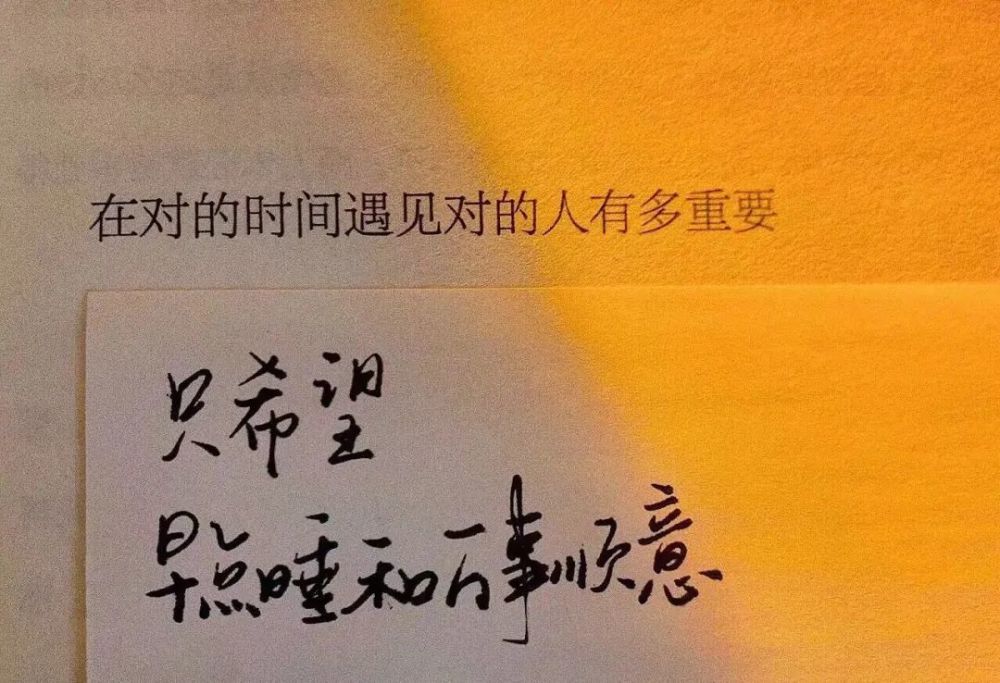 在对的时间遇见对的人有多重要
只希望
早点睡和万事顺意